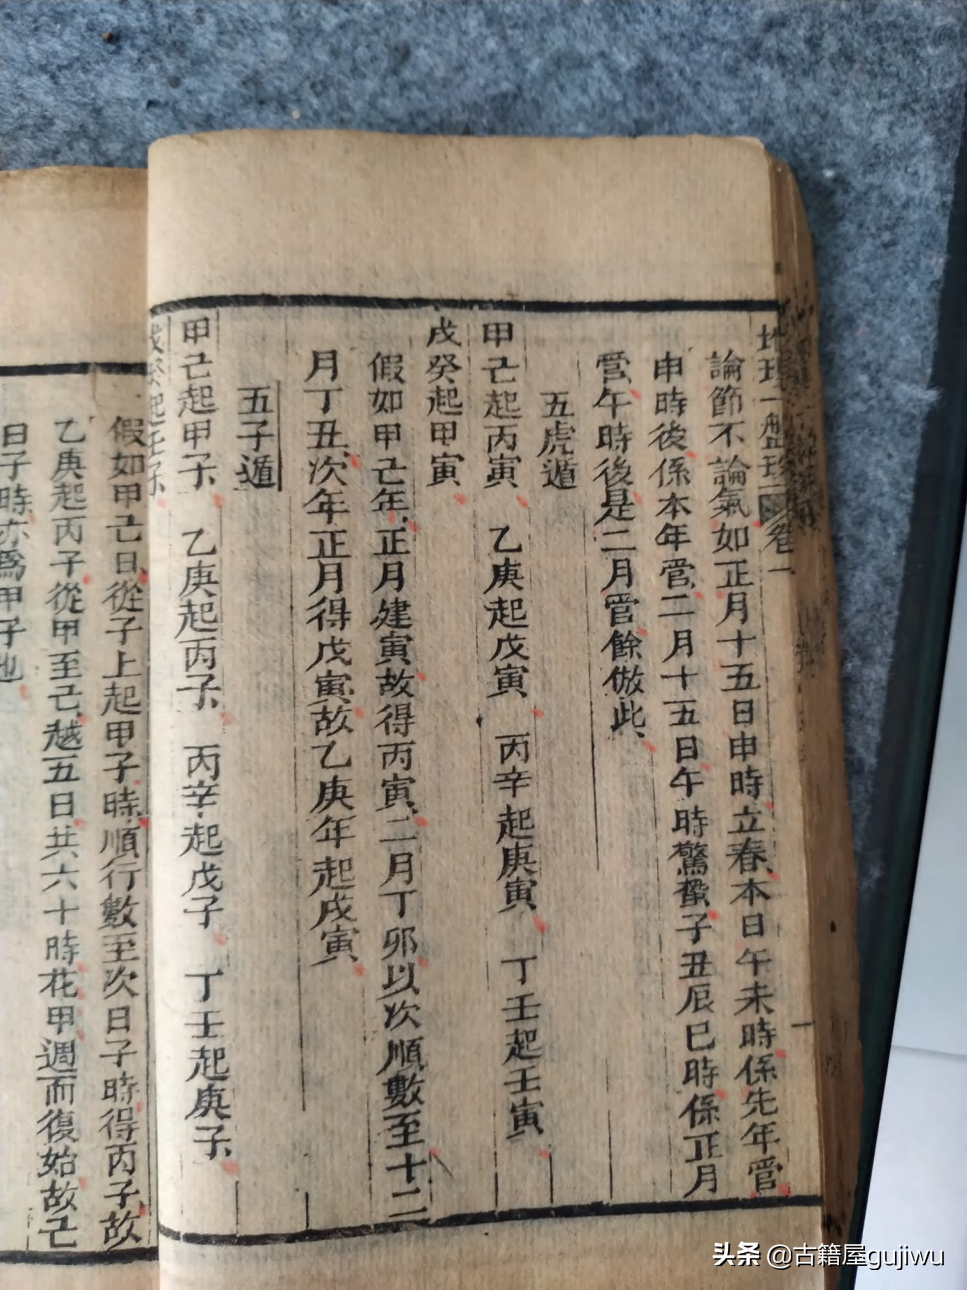 地理一盤珍 卷一 一
論節不論氣如正月十五日申時立春本日午未時係先年管
申時後係本年管二月十五日午時驚蟄子丑辰巳時係正月
管午時後是二月管餘倣此
五虎遁
甲己起丙寅 乙庚起戊寅 丙辛起庚寅 丁壬起壬寅
戊癸起甲寅
假如甲己年正月建寅故得丙寅二月丁卯以次順數至十二
月丁丑次年正月得戊寅故乙庚年起戊寅
五子遁
甲己起甲子 乙庚起丙子 丙辛起戊子 丁壬起庚子
戊癸起壬子
假如甲己日從子上起甲子時順行數至次日子時得丙子故
乙庚起丙子從甲至己越五日共六十時花甲週而復始故己
日子時亦為甲子也
头条 @古籍屋gujiwu